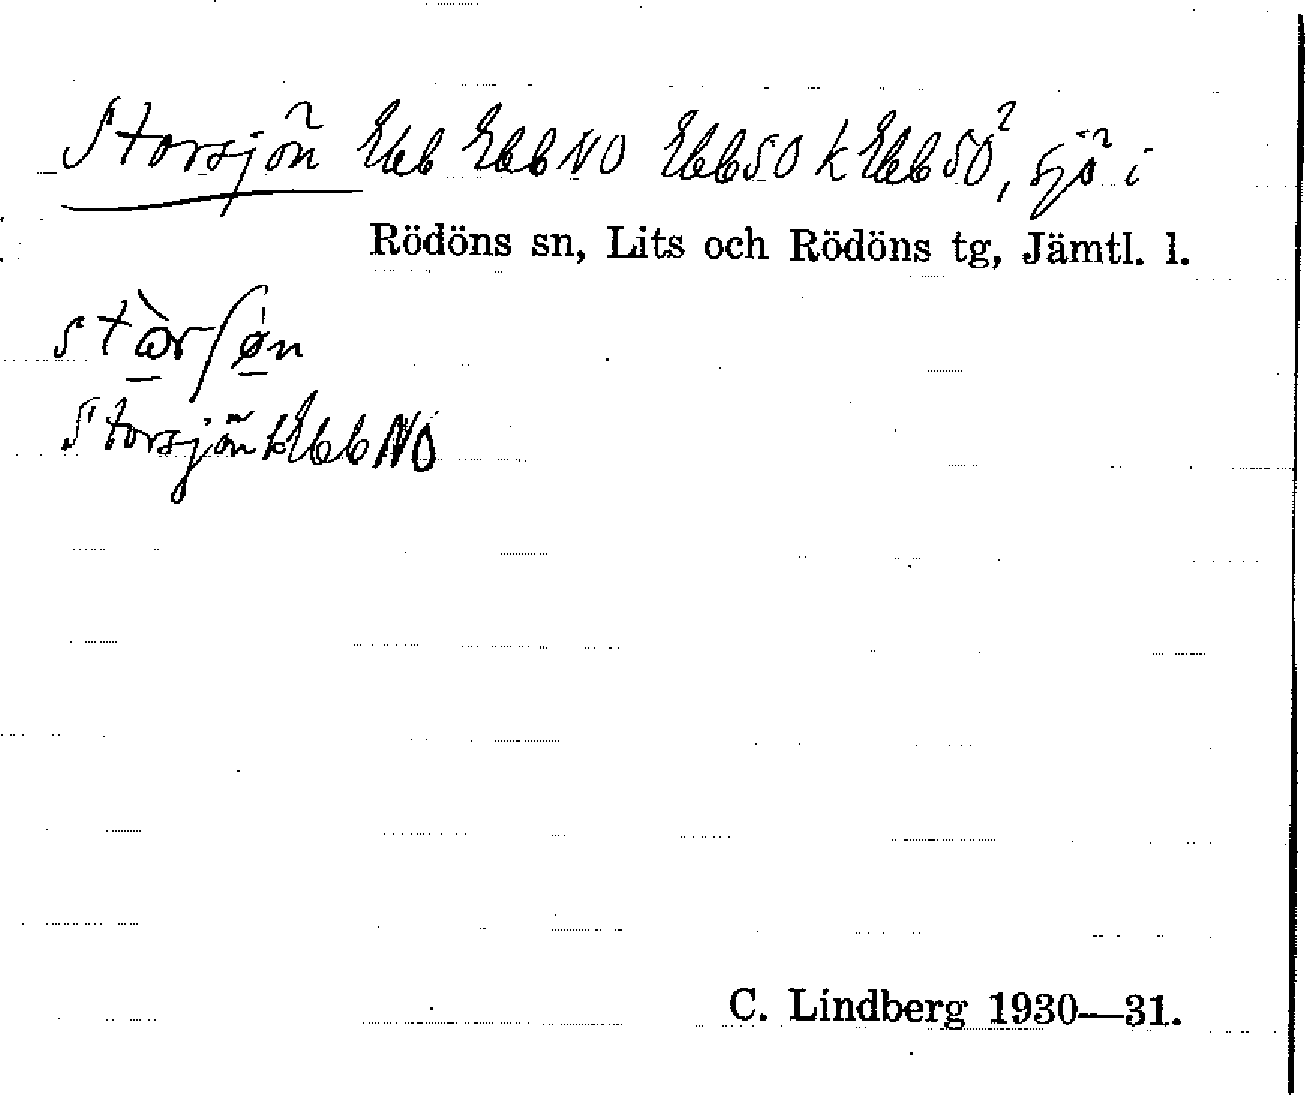 Storsjön Ebb EbbNO EbbSO k EbbSO², sjö i
Rödöns sn, Lits och Rödöns tg, Jämtl. l.
stòrʃøn
Storsjön k EbbNO
C. Lindberg 1930—31.